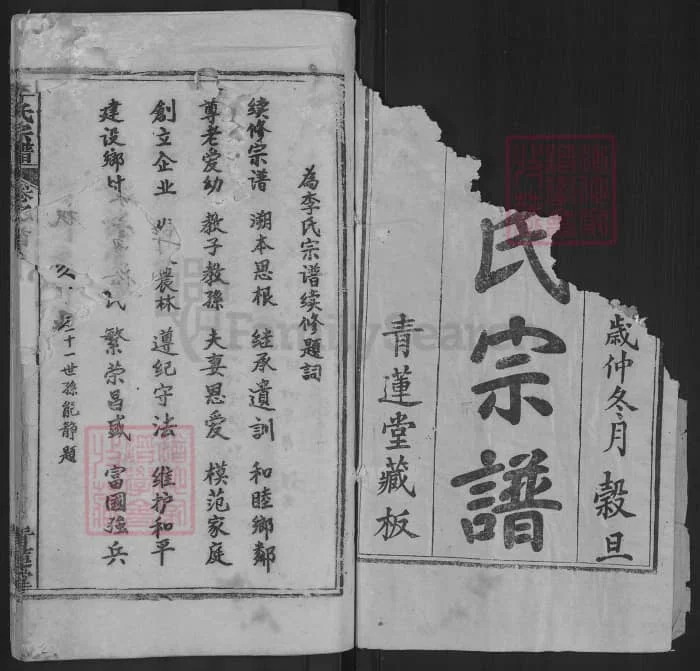 歲仲冬月 穀旦
氏宗譜
青蓮堂藏板
為李氏宗谱续修題詞
续修宗谱 溯本思根 继承遺訓 和睦鄉鄰
尊老爱幼 教子教孫 夫妻恩爱 模范家庭
創立企业 農林 遵纪守法 维护和平
建设鄉 民 繁荣昌盛 富國强兵
三十一世孫能静題
氏宗譜
FamilySearch